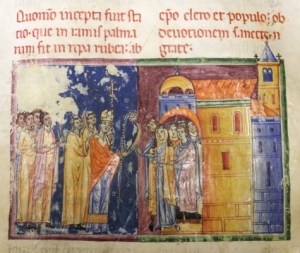 Quomo incepta fuit sta
tio· que in ramis palma
rum fit in ripa rubea· ab
epo clero et populo; ob
deuotionem s.
grate·